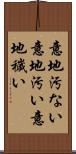 意地汚ない
意地汚い意
地穢い